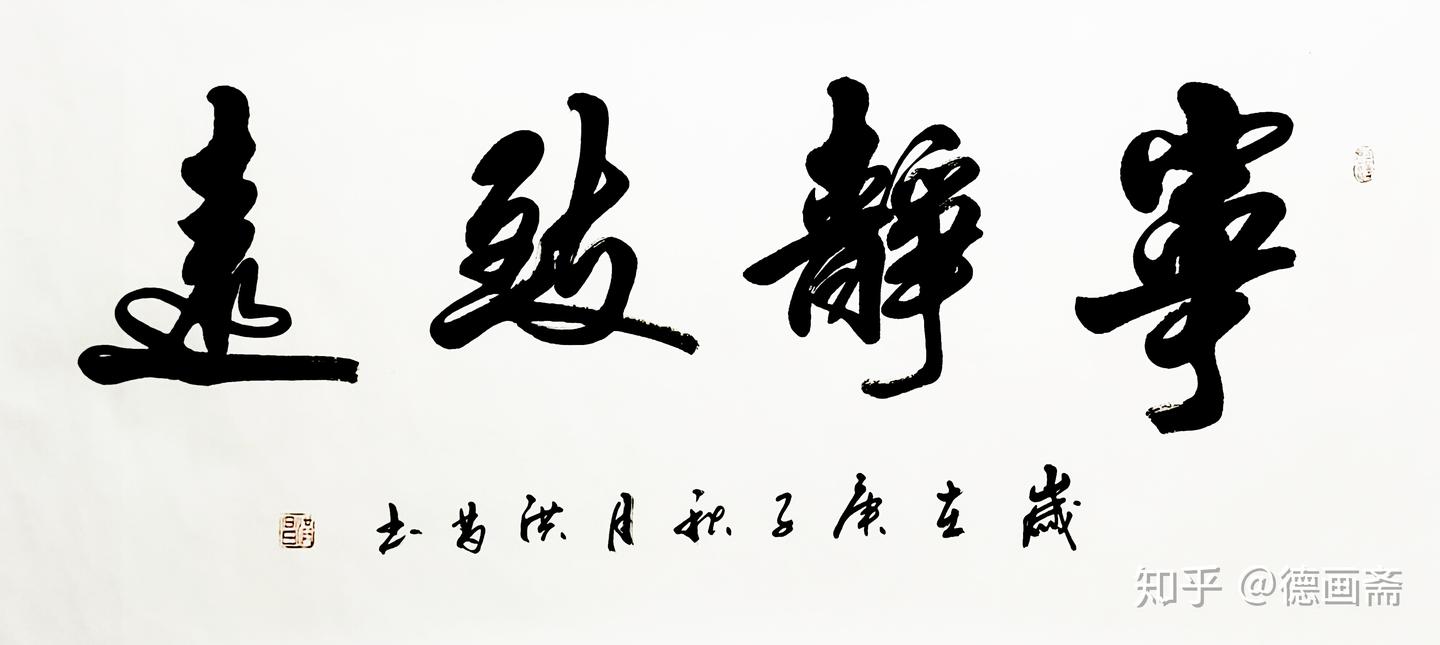 寧靜致遠
歲在庚子秋月洪书
知乎 @德画斋